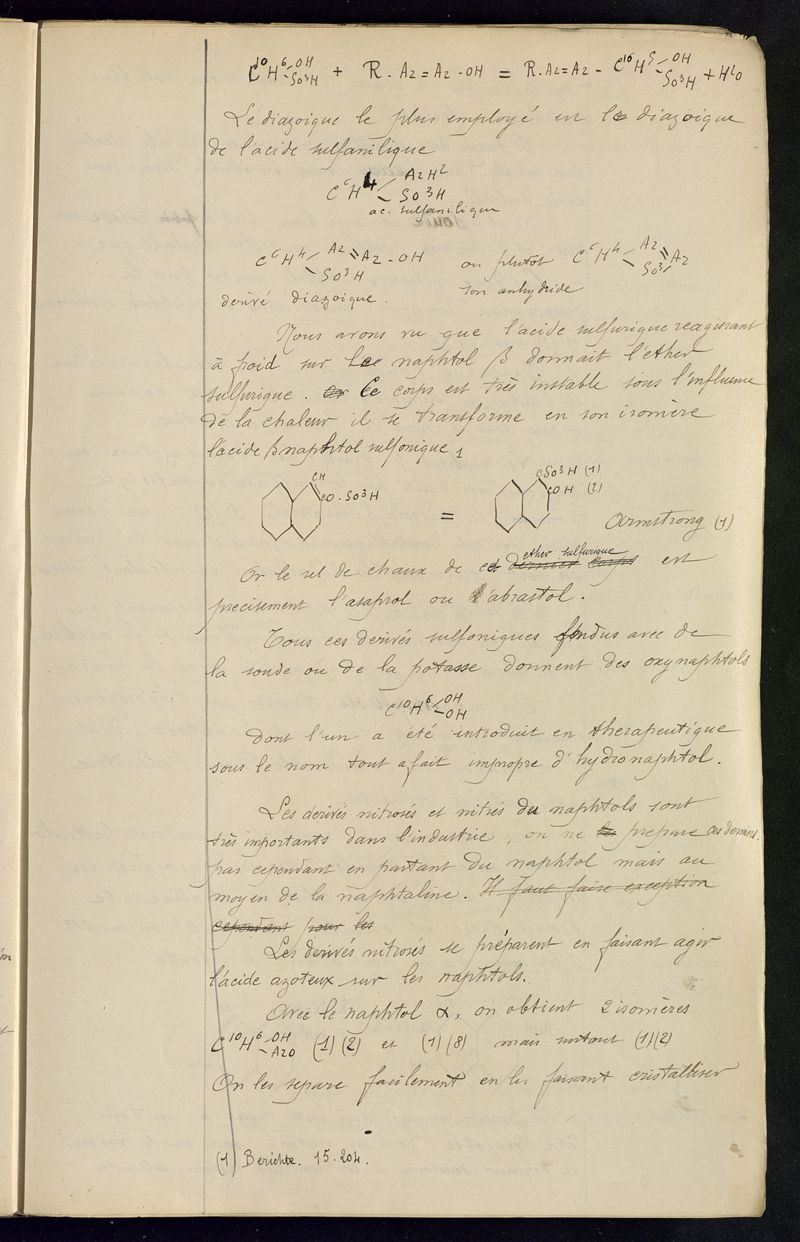 C¹⁰H⁶ - OH - SO³H + R - Az = Az - OH = R - Az = Az - C¹⁰H⁵ - OH - SO³H + H²O
Le diazoique le plus employé est le diazoique
de l'acide sulfanilique
C⁶H⁴ - AzH² - SO³H
ac. sulfanilique
C⁶H⁴ - Az = Az - OH - SO³H ou plutôt C⁶H⁴ - Az = Az - SO³
derivé diazoique. son anhydride
Nous avons vu que l'acide sulfurique reagissant
à froid sur le naphtol β donnait l'ether
sulfurique. Or Ce corps est très instable sous l'influence
de la chaleur il se transforme en son isomère
l'acide β naphtol sulfonique 1
CH CO.SO³H = CSO³H (1) COH (2) Armstrong (1)
Or le sel de chaux de cet dernier corps ether sulfurique est
precisement l'asaprol ou l'abrastol.
Tous ces derivés sulfoniques fondus avec de
la soude ou de la potasse donnent des oxynaphtols
C¹⁰H⁶ - OH - OH
dont l'un a été introduit en therapeutique
sous le nom tout a fait impropre d'hydronaphtol.
Les derivés nitrosés et nitrés du naphtols sont
très importants dans l'industrie, on ne les prepare ces derniers
pas cependant en partant du naphtol mais au
moyen de la naphtaline. Il faut faire exception
cependant pour les
Les derivés nitrosés se préparent en faisant agir
l'acide azoteux sur les naphtols.
Avec le naphtol α, on obtient 2 isomères
C¹⁰H⁶ - OH - AzO (1)(2) et (1)(8) mais surtout (1)(2)
On les separe facilement en les faisant cristalliser
(1) Berichte. 15.204.